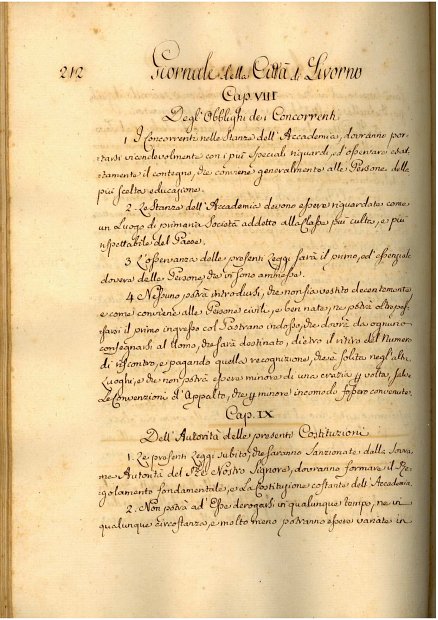 212 Giornale della Città di Livorno
Cap. VIII
Degl' Obblighi dei Concorrenti
1 I Concorrenti nelle Stanze dell' Accademia, dovranno por-
tarsi vicendevolmente con i più speciali riguardi, ed osservare esat-
tamente il contegno, che conviene generalmente alle Persone della
più scelta educazione.
2. Le Stanze dell' Accademia devono essere riguardate come
un Luogo di primaria Società addetto alla Classe più culta, e più
rispettabile del Paese.
3 L'osservanza delle presenti Leggi sarà il primo, ed essenziale
dovere delle Persone, che vi sono ammesse.
4 Nessuno potrà introdursi, che non sia vestito decentemente
e come conviene alle Persone civili, e ben nate, ne potrà oltrepas-
sarsi il primo ingresso col Pastrano indosso, che dovrà da ognuno
consegnarsi al Uomo, che sarà destinato, dietro il ritiro del Numero
di riscontro, e pagando quella recognizione, che è solita negl' altri
Luoghi, e che non potrà essere minore di una crazia p volta, salve
Le Convenzioni d'Appalto, che p minore incomodo fossero convenute.
Cap. IX
Dell' Autorità delle presenti Costituzioni
1. Le presenti Leggi subito, che saranno Sanzionate dalla Sovra-
na Autorità del Re Nostro Signore, dovranno formare il Re-
golamento fondamentale, e la Costituzione costante dell' Accademia.
2. Non potrà ad Esse derogarsi in qualunque tempo, ne in
qualunque circostanza, e molto meno potranno essere variate in